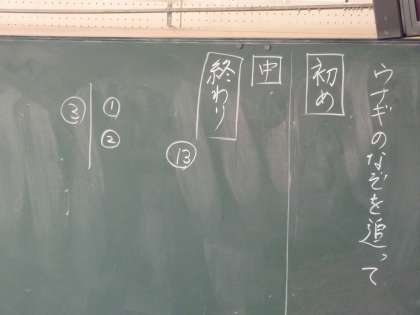 ウナギのなぞを追って
初め
中
終わり
⑬
①
②
③